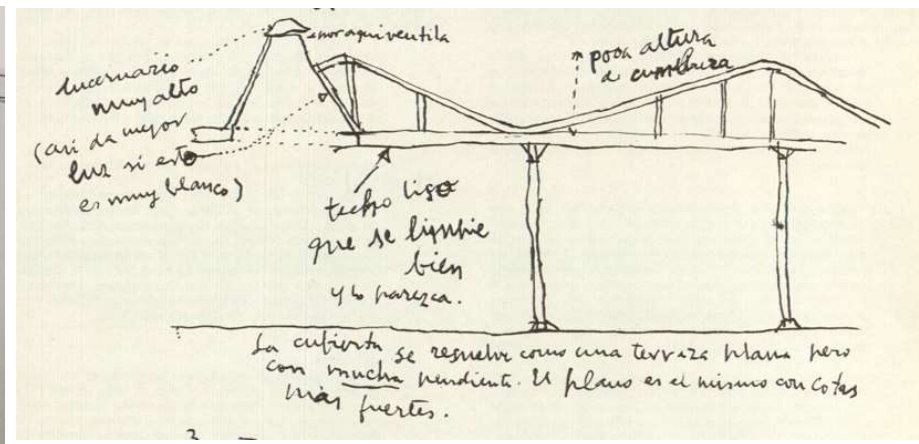 por aqui ventila
lucernario
muy alto
(asi da mejor
luz si esto
es muy blanco)
poca altura
a cumbrera
techo liso
que se limpie
bien
y lo parezca.
La cubierta se resuelve como una terraza plana pero
con mucha pendiente. El plano es el mismo con cotas
más fuertes.
3